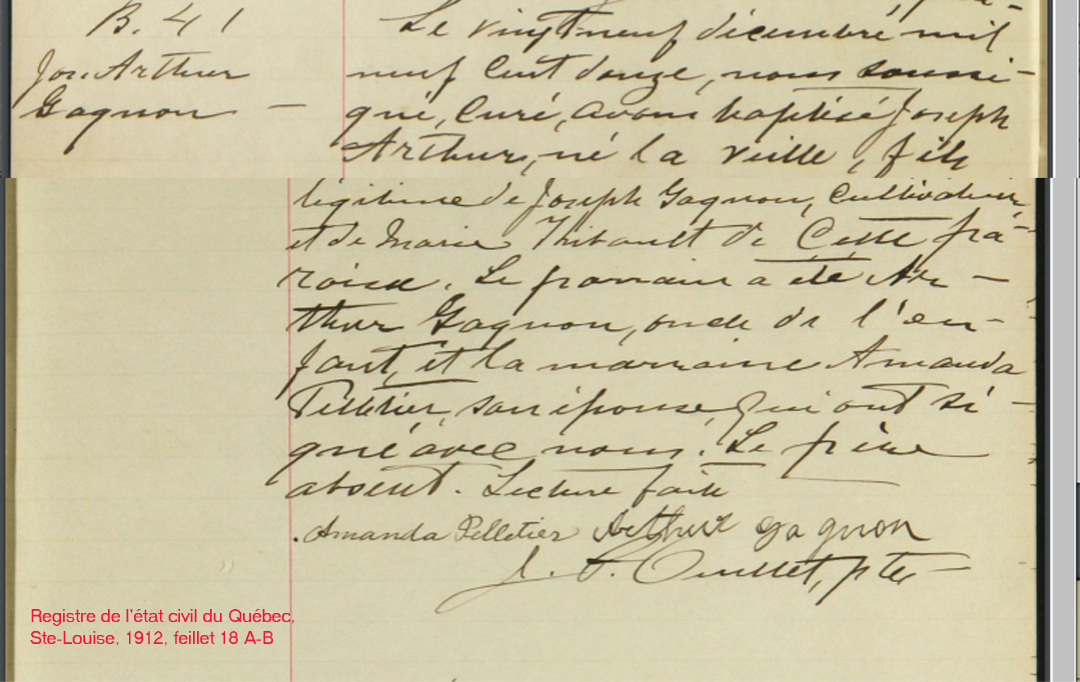 B. 41
Jos. Arthur
Gagnon —
Le vingt neuf décembre mil
neuf cent douze, nous soussi-
gné, Curé, avons baptisé Joseph
Arthur, né la veille, fils
légitime de Joseph Gagnon, cultivateur,
et de Marie Thibault de Cette pa-
roisse. Le parrain a été Ar-
thur Gagnon, oncle de l'en-
fant, et la marraine Amanda
Pelletier, son épouse, qui ont si-
gné avec nous. Le père
absent. Lecture faite
Amanda Pelletier Arthur Gagnon
Ouellet, ptre
Registre de l'état civil du Québec,
Ste-Louise, 1912, feillet 18 A-B